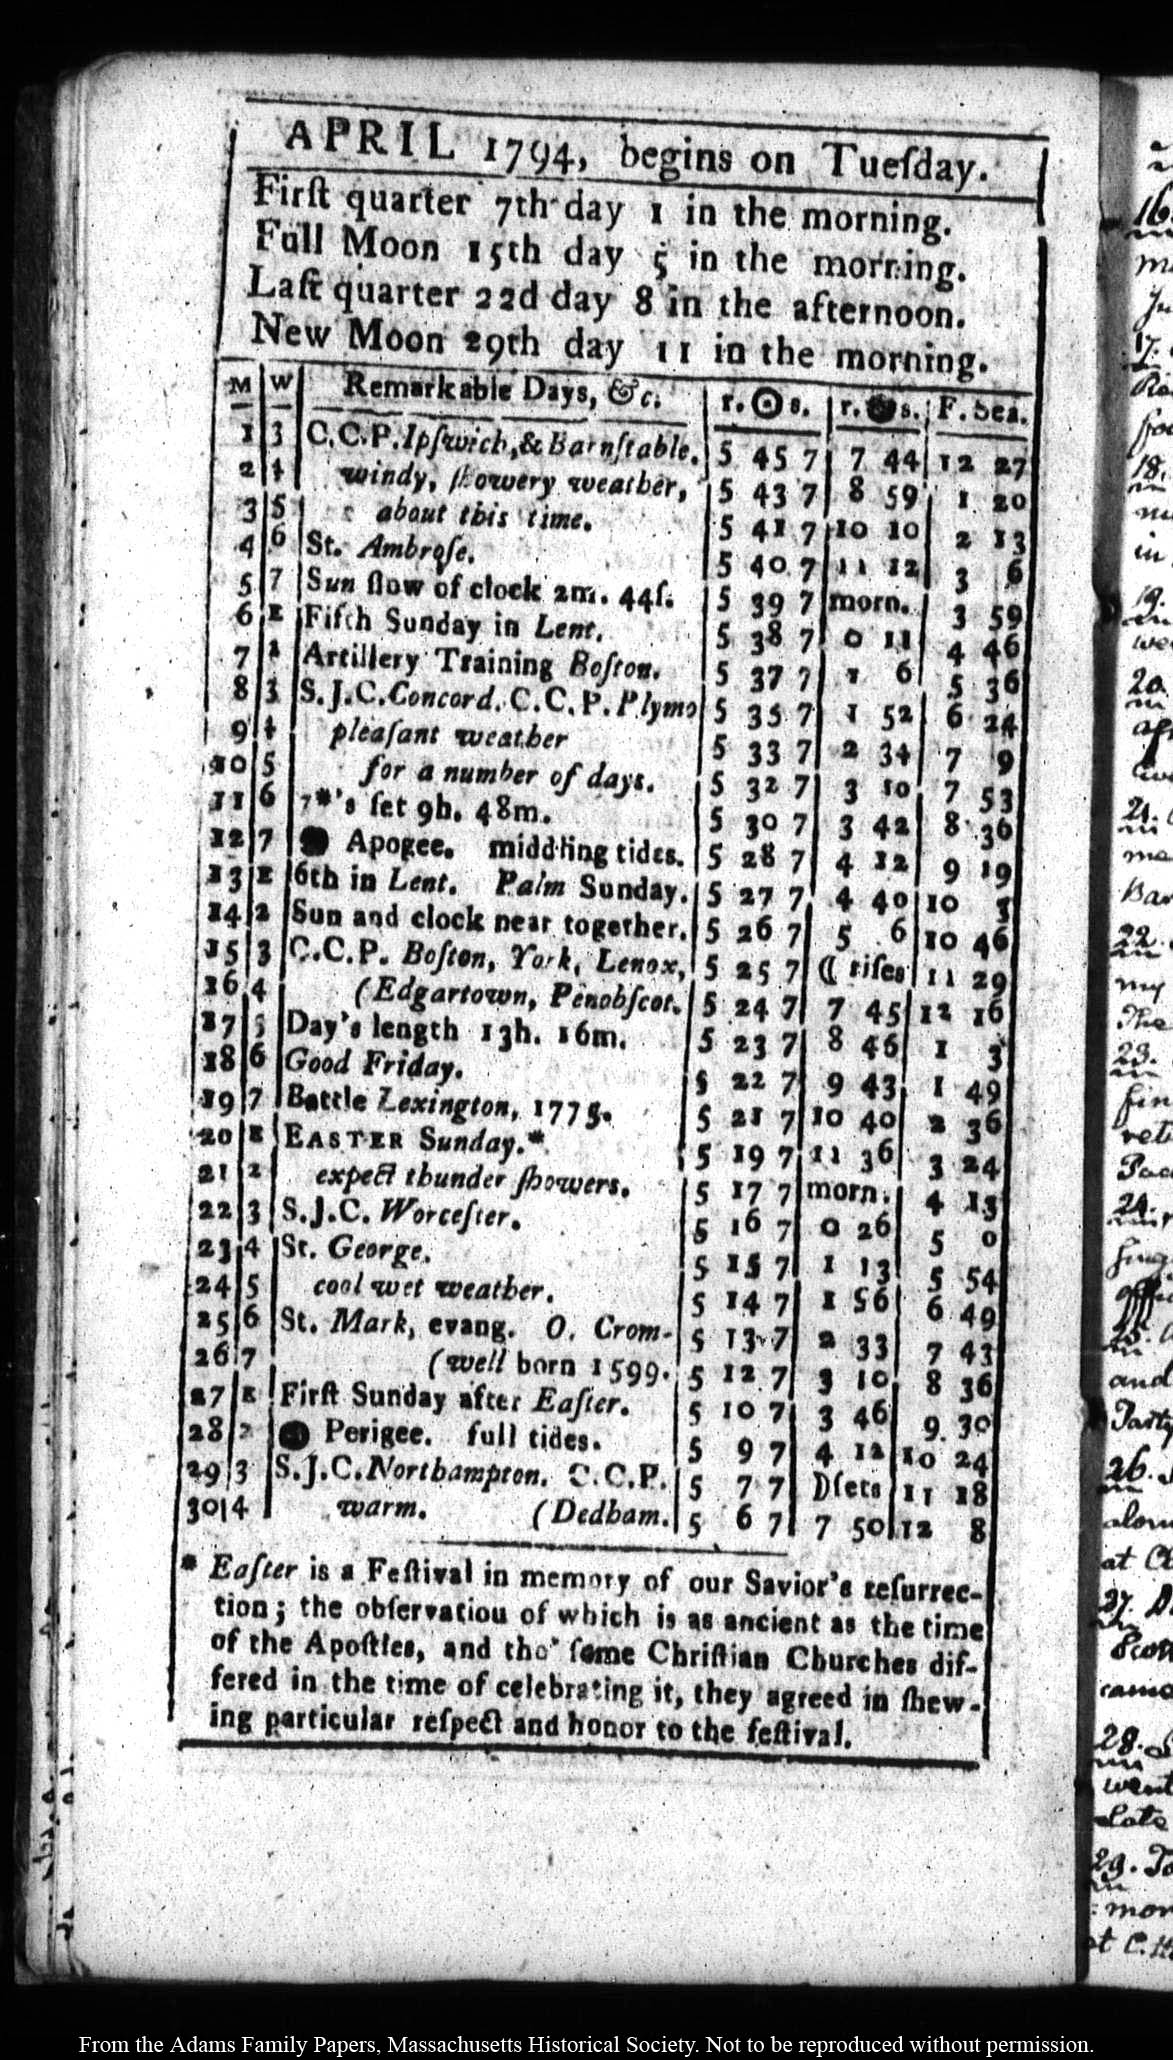 APRIL 1794, begins on Tueſday.
Firſt quarter 7th day 1 in the morning.
Full Moon 15th day 5 in the morning.
Laſt quarter 22d day 8 in the afternoon.
New Moon 29th day 11 in the morning.
M W Remarkable Days, &c. r. ☉ s. r. s. F. Sea.
1 3 C.C.P. Ipſwich, & Barnſtable. 5 45 7 7 44 12 27
2 4 windy, ſhowery weather, 5 43 7 8 59 1 20
3 5 about this time. 5 41 7 10 10 2 13
4 6 St. Ambroſe. 5 40 7 11 12 3 6
5 7 Sun ſlow of clock 2m. 44ſ. 5 39 7 morn. 3 59
6 E Fifth Sunday in Lent. 5 38 7 0 11 4 46
7 2 Artillery Training Boſton. 5 37 7 1 6 5 36
8 3 S.J.C. Concord. C.C.P. Plymo 5 35 7 1 52 6 24
9 4 pleaſant weather 5 33 7 2 34 7 9
10 5 for a number of days. 5 32 7 3 10 7 53
11 6 7*'s ſet 9h. 48m. 5 30 7 3 42 8 36
12 7 Apogee. middling tides. 5 28 7 4 12 9 19
13 E 6th in Lent. Palm Sunday. 5 27 7 4 40 10
14 2 Sun and clock near together. 5 26 7 5 6 10 46
15 3 C.C.P. Boſton, York, Lenox, 5 25 7 ☾ riſes 11 29
16 4 (Edgartown, Penobſcot. 5 24 7 7 45 12 16
17 5 Day's length 13h. 16m. 5 23 7 8 46 1 3
18 6 Good Friday. 5 22 7 9 43 1 49
19 7 Battle Lexington, 1775. 5 21 7 10 40 2 36
20 E EASTER Sunday.* 5 19 7 11 36 3 24
21 2 expect thunder ſhowers. 5 17 7 morn. 4 13
22 3 S.J.C. Worceſter. 5 16 7 0 26 5 0
23 4 St. George. 5 15 7 1 13 5 54
24 5 cool wet weather. 5 14 7 1 56 6 49
25 6 St. Mark, evang. O. Crom- 5 13 7 2 33 7 43
26 7 (well born 1599. 5 12 7 3 10 8 36
27 E Firſt Sunday after Eaſter. 5 10 7 3 46 9 30
28 2 Perigee. full tides. 5 9 7 4 12 10 24
29 3 S.J.C. Northampton. C.C.P. 5 7 7 ☽ ſets 11 18
30 4 warm. (Dedham. 5 6 7 7 50 12 8
* Eaſter is a Feſtival in memory of our Savior's reſurrec-
tion; the obſervatiou of which is as ancient as the time
of the Apoſtles, and tho' ſome Chriſtian Churches dif-
fered in the time of celebrating it, they agreed in ſhew-
ing particular reſpect and honor to the feſtival.
16.
17.
18.
19.
20.
21.
22.
my
The
23.
24.
25.
and
26.
27.
28.
went
Late
29.
From the Adams Family Papers, Massachusetts Historical Society. Not to be reproduced without permission.